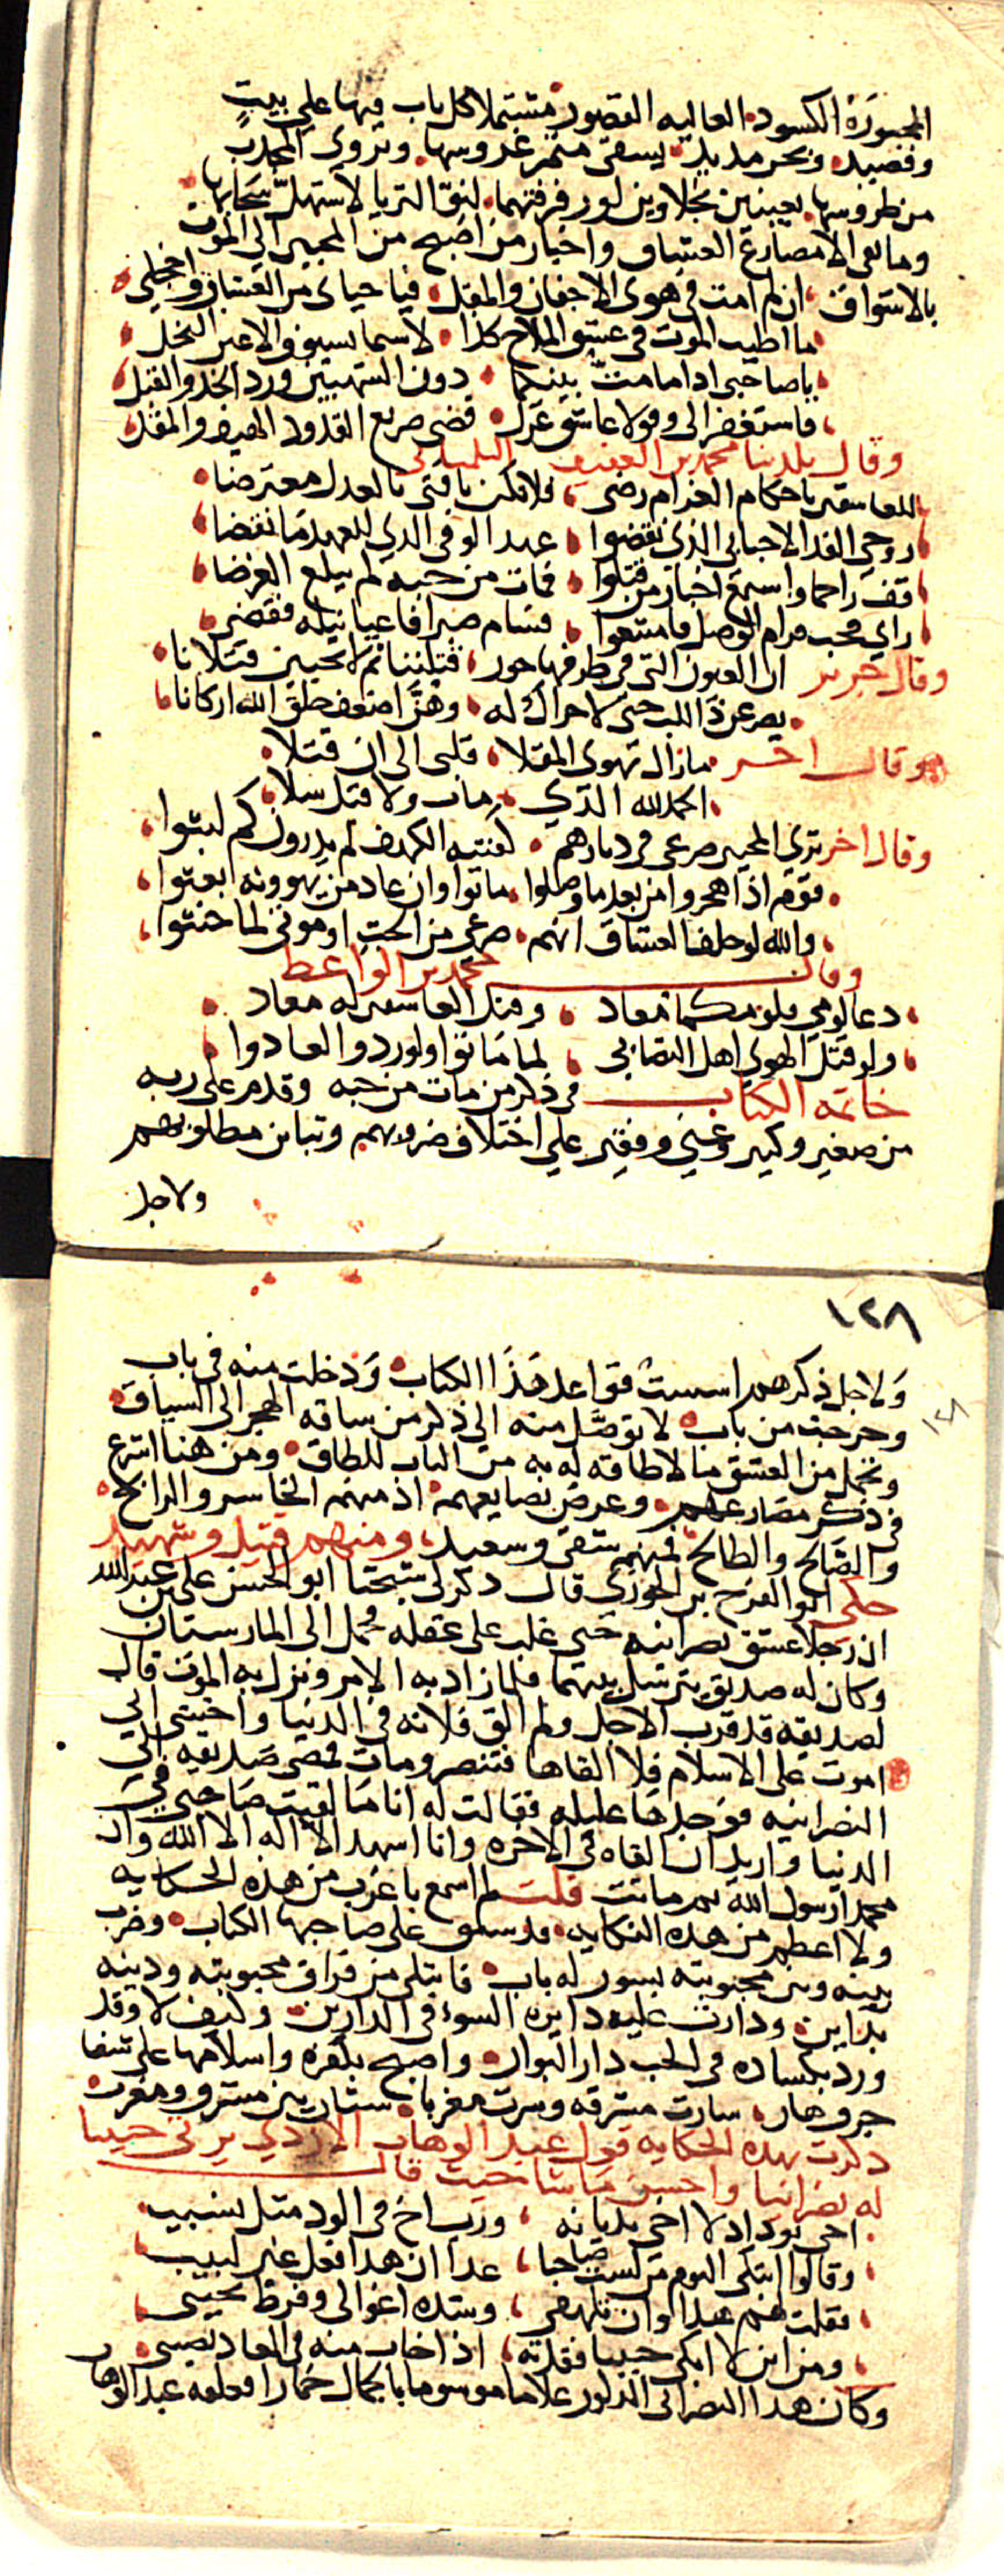 المجبورة الكسور العاليه القصور مشتملا كل باب منها على بيت
وقصيد وبحر مديد يسقى منثمر غروسها وتروى المجدب
من طروسها بعينين نجلاوين لو رفرفتهما لنوّ الثريا لاستهلّ سحابها
وما بقى الا مصارع العشاق واخبار من اصبح من المحبين الى الموت
بالاشواق ان لم امت فى هوى الاجفان والمقل فيا حياى من العشاق واخجلي
ما اطيب الموت فى عشق الملاح كذا لا سيما بسيوف الاعين النجل
يا صاحبى اذا ما مت بينكما دون الشهيين ورد الخد والقبل
فاستغفرا لى وقولا عاشق غزل قضى صريع القدود الهيف والمقل
وقال بلدينا محمد بن العفيف التلمسانى
للعاشقين باحكام الغرام رضى فلا تكن يا فتى بالعدل معترضا
روحي الفدا لاحبابي الذي نقضوا عهد الوفى الدي للعهد ما نقضا
قف راحما واسمع اخبار من قتلوا فمات من حبه لم يبلع الغرضا
راي فحب مرام الوصل فامتنعوا فسام صبرا فاعيا نيله فقضى
وقال جرير ان العيون التى فى طرفها حور قتلننا ثم لا يحيين قتلانا
يصرعن ذا اللب حتى لا حراك له وهن اضعف خلق الله اركانا
وقال اخر مازال تهوى المقلا قلبى الى ان قتلا
الحمد لله الذي مات ولا قتل سلا
وقال اخر ترى المحبين صرعى فى ديارهم كفتية الكهف لم يدرون كم لبثوا
قوم اذا هجروا من بعد ما وصلوا ماتوا وان عاد من يهوونه ابعثوا
والله لو حلف العشاق انهم صرعي من الحب او موتى لما حنثوا
وقال محمد بن الواعظ
دعا لومي فلومكما معاد وقتل العاشقين له معاد
ولو قتل الهوي اهل التصابى لما ماتوا ولو ردوا لعادوا
خاتمه الكتاب فى ذكر من مات من حبه وقدم على ربه
من صغير وكبير وغني وفقير علي اختلاف ضروبهم وتباين مطلوبهم
ولاجل
١٢٨
ولاجل ذكرهم اسست قواعد هذا الكتاب ودخلت منه فى باب
١٢٨
وخرجت من باب لاتوصّل منه الى ذكر من ساقه الهجر الى السياق
وتحمل من العشق ما لا طاقه له به من الباب للطاق ومن هنا اشرع
فى ذكر مصارعهم وعرض بضايعهم اذ منهم الخاسر والرابح
والصّالح والطالح فمنهم شقى وسعيد ومنهم قتيل وشهيد
حكى ابو الفرج بن الجوزي قال ذكر لى شيخنا ابو الحسن على بن عبد الله
ان رجلا عشق نصرانيه حتى غلب على عقله فحمل الى المارستان
وكان له صديق يترسل بينهما فلما زاد به الامر ونزل به الموت قال
لصديقه قد قرب الاجل ولم الق فلانه فى الدنيا واخشى اني
اموت على الاسلام فلا القاها فتنصر ومات فمضى صديقه الى
النصرانيه فوجدها عليله فقالت له انا ما لقيت صاحبي في
الدنيا واريد ان القاه فى الاخره وانا اشهد الا اله الا الله وان
محمدا رسول الله ثم ماتت قلت لم اسمع باغرب من هذه الحكايه
ولا اعظم من هذه النكايه قد سبق على صاحبها الكتاب وضرب
بينه وبين محبوبته بسور له باب فابتلى من فراق محبوبته ودينه
بداين ودارت عليه دايره السوء فى الدارين وكيف لا وقد
ورد بكساده فى الحب دار البوار واصبح بكفره واسلامها على شفا
جرف هار سارت مشرقه وسرت مغربا شتان بين مشرق ومغرب
ذكرت بهذه الحكايه قول عبد الوهاب الازدي يرثى حبيبا
له نصرانيا واحسن ما شا حيث قال
اخى بوداد لا اخى بديانه ورب اخ فى الود مثل نسيب
وقالوا ابتكى اليوم من لست صاحبا غدا ان هذا فعل غير لبيب
فقلت لهم هذا اوان تلهفى وشده اعوالى وفرط نحيبى
ومن اين لا ابكى حبيبا فقدته اذا خاب منه فى المعاد نصيبى
وكان هذا النصرانى المذكور غلاما موسوما بالجمال خمارا فعلقه عبد الوهاب